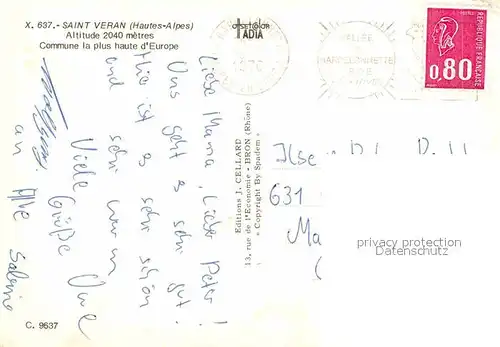 X. 637.- SAINT VERAN (Hautes-Alpes)
Altitude 2040 mètres
Commune la plus haute d'Europe
Liebe Mama, Lieber Peter!
Uns geht es sehr gut.
Hie ist es sehr schön
und sehr warm
Viele Grüße Eure
an Alle Sabine
C. 9637
offsetcolor
IADIA
Editions J. CELLARD
13, rue de l'Economie - BRON (Rhône)
« Copyright By Spadem »
VALLEE
BARCELONNETTE
REPUBLIQUE FRANCAISE
0,80
Ilse
631
Ma
privacy protection
Datenschutz